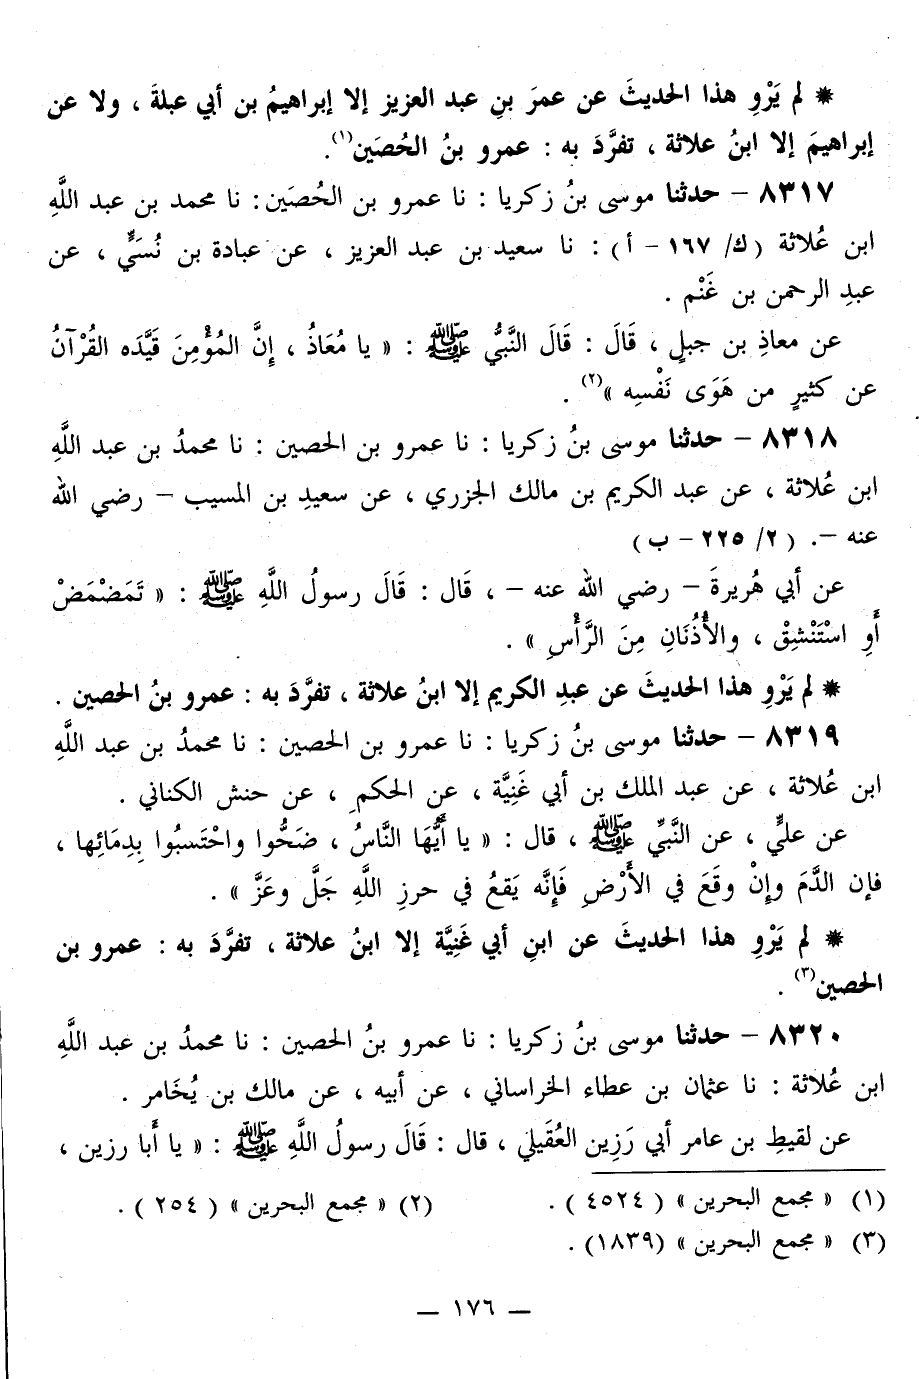 * لم يَرْوِ هذا الحديثَ عن عمرَ بنِ عبد العزيز إلا إبراهيمُ بن أبي عبلةَ ، ولا عن
إبراهيمَ إلا ابنُ علاثة ، تفرَّدَ به : عمرو بنُ الحُصَين(١).
٨٣١٧ – حدثنا موسى بنُ زكريا : نا عمرو بن الحُصَين: نا محمد بن عبد اللَّهِ
ابن عُلاثة (ك/ ١٦٧ – أ) : نا سعيد بن عبد العزيز ، عن عبادة بن نُسَيٍّ ، عن
عبدِ الرحمن بن غَنْم .
عن معاذِ بن جبلٍ ، قَالَ : قَالَ النَّبيُّ ﷺ : « يا مُعَاذُ ، إِنَّ المُؤْمِنَ قَيَّدَه القُرْآنُ
عن كثيرٍ من هَوَى نَفْسِه »(٢) .
٨٣١٨ – حدثنا موسى بنُ زكريا : نا عمرو بن الحصين : نا محمدُ بن عبد اللَّهِ
ابن عُلاثة ، عن عبد الكريم بن مالك الجزري ، عن سعيدِ بن المسيب – رضي الله
عنه –. (٢/ ٢٢٥ – ب)
عن أبي هُريرةَ – رضي الله عنه – ، قَال : قَالَ رسولُ اللَّهِ ﷺ : « تَمَضْمَضْ
أَوِ اسْتَنْشِقْ ، والأُذُنَانِ مِنَ الرَّأْسِ » .
* لم يَرْوِ هذا الحديثَ عن عبدِ الكريم إلا ابنُ علاثة ، تفرَّدَ به : عمرو بنُ الحصين .
٨٣١٩ – حدثنا موسى بنُ زكريا : نا عمرو بن الحصين : نا محمدُ بن عبد اللَّهِ
ابن عُلاثة ، عن عبد الملك بن أبي غَنِيَّة ، عن الحكمِ ، عن حنش الكناني .
عن عليٍّ ، عن النَّبيِّ ﷺ ، قال : « يا أَيُّهَا النَّاسُ ، ضَحُّوا واحْتَسِبُوا بِدِمَائِها ،
فإن الدَّمَ وإِنْ وقَعَ في الأَرْضِ فَإِنَّه يَقعُ في حرزِ اللَّهِ جَلَّ وعَزَّ » .
* لم يَرْوِ هذا الحديثَ عن ابنِ أبي غَنِيَّة إلا ابنُ علاثة ، تفرَّدَ به : عمرو بن
الحصين(٣) .
٨٣٢٠ – حدثنا موسى بنُ زكريا : نا عمرو بنُ الحصين : نا محمدُ بن عبد اللَّهِ
ابن عُلاثة : نا عثمان بن عطاء الخراساني ، عن أبيه ، عن مالك بن يُخَامر .
عن لقيطِ بن عامر أبي رَزِين العُقَيلي ، قال : قَالَ رسولُ اللَّهِ ﷺ : « يا أَبا رزين ،
(١) « مجمع البحرين » ( ٤٥٢٤ ) . (٢) « مجمع البحرين » ( ٢٥٤ ) .
(٣) « مجمع البحرين » (١٨٣٩) .
— ١٧٦ —